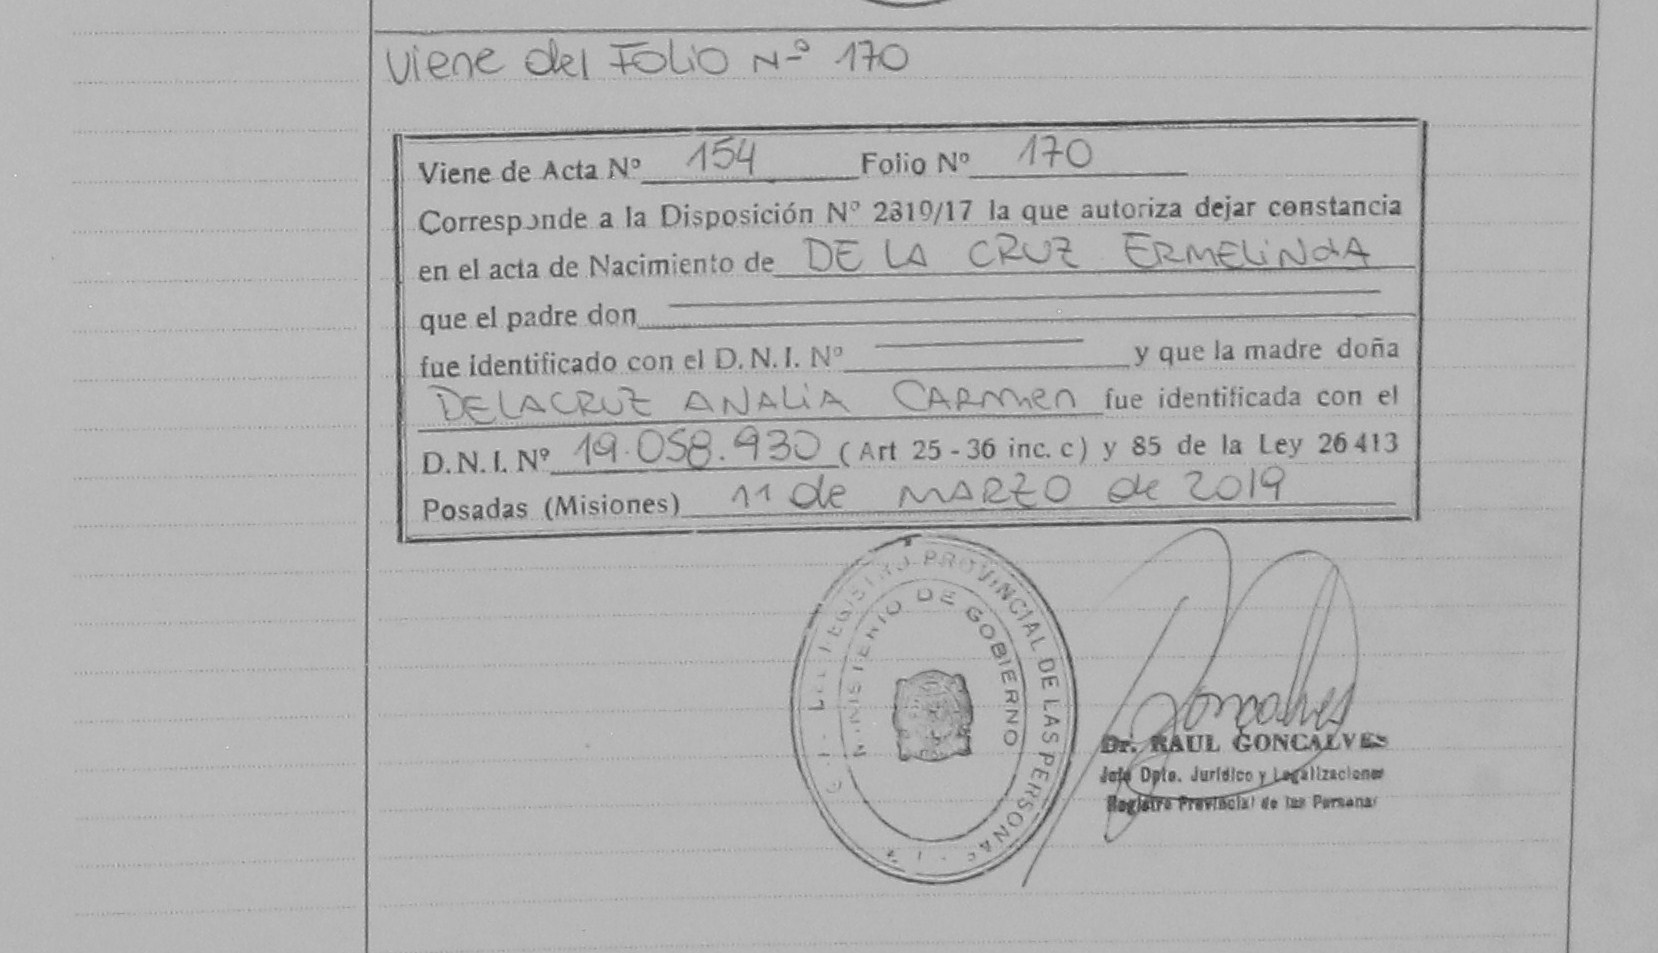 Viene del Folio Nº 170
Viene de Acta Nº 154 Folio Nº 170
Corresponde a la Disposición Nº 2319/17 la que autoriza dejar constancia
en el acta de Nacimiento de DE LA CRUZ ERMELiNdA
que el padre don
fue identificado con el D.N.I. Nº y que la madre doña
DELACRUZ ANALiA CARMen fue identificada con el
D.N.I. Nº 19.058.930 (Art 25-36 inc. c) y 85 de la Ley 26413
Posadas (Misiones) 11 de MARZO de 2019
REGISTRO PROVINCIAL DE LAS PERSONAS
MINISTERIO DE GOBIERNO
Goncalves
Dr. RAUL GONCALVES
Jefe Dpto. Jurídico y Legalizaciones
Registro Provincial de las Personas